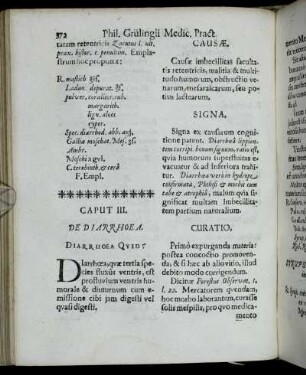 372 Phil. Grülingii Medic. Pract.
tatam retentricis Zacutus l. ult.
prax. histor. c. penultim. Empla-
strum hoc proponit:
R. mastich ℥iſ.
Ladan. depurat. ℥ſ.
pulver. corallior. rub.
margarith.
lign. aloes
cyper.
Spec. diarrhod. abb. āāʒ
Galliæ moschat. Mes.
Ambr.
Moschi ā gr.
C. terebinth. & cera
F. Empl.
CAPUT III.
DE DIARRHOEA.
DIARRHOEA QUID?
Diarrhœa, quæ tertia spe-
cies fluxûs ventris, est
profluvium ventris hu-
morale & diuturnum cum e-
missione cibi jam digesti vel
quasi digesti.
CAUSÆ.
Causæ imbecillitas facul-
tatis retentricis, malitia & multi-
tudo humorum, obstructio ve-
narum mesaraicarum, seu po-
tius lactearum.
SIGNA.
Signa ex causarum cognî-
tione patent. Diarrhœa lippien-
tem corripi bonum signum, ratio est,
quia humorum superfluitas e-
vacuatur & ad inferiora trahi-
tur. Diarrhœa veniens hydrope
confirmato, Phthisi & morbi cum
tabe & atrophiâ, malum est, quia
significat multam imbecillita-
tem partium naturalium.
CURATIO.
Primò expurganda materia:
postea concoctio promoven-
da, & si hæc ab alio vitio, illud
debito modo corrigendum.
Dicitur Forestus Observat. 1.
l. 22. Mercatorem quendam,
hoc morbo laborantem, curasse
solis mespilis, pro quo medica-
mento